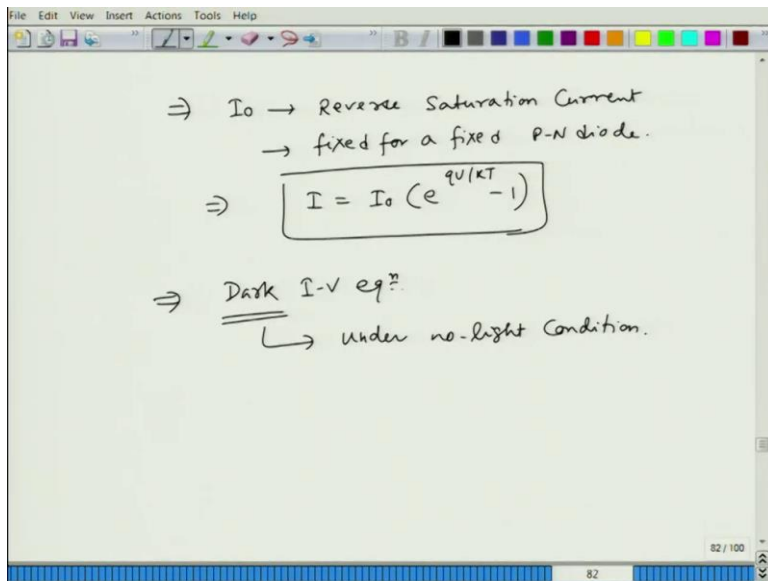 File Edit View Insert Actions Tools Help
B I
⇒ Io → Reverse Saturation Current
→ fixed for a fixed P-N diode.
⇒ I = Io (e^qV/KT - 1)
⇒ Dark I-V eqⁿ.
↳ under no-light Condition.
82 / 100
82